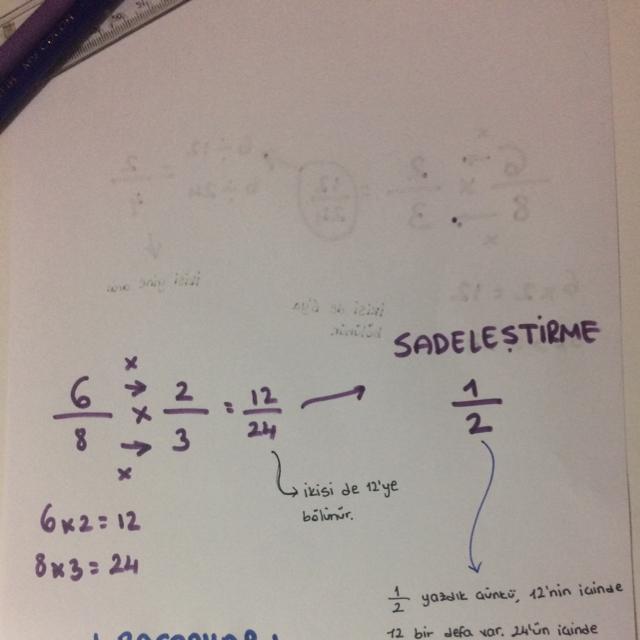 SADELEŞTİRME
x
6/8 → x → 2/3 = 12/24 → 1/2
x
ikisi de 12'ye
bölünür.
6x2=12
8x3=24
1/2 yazdık çünkü, 12'nin içinde
12 bir defa var. 24'ün içinde